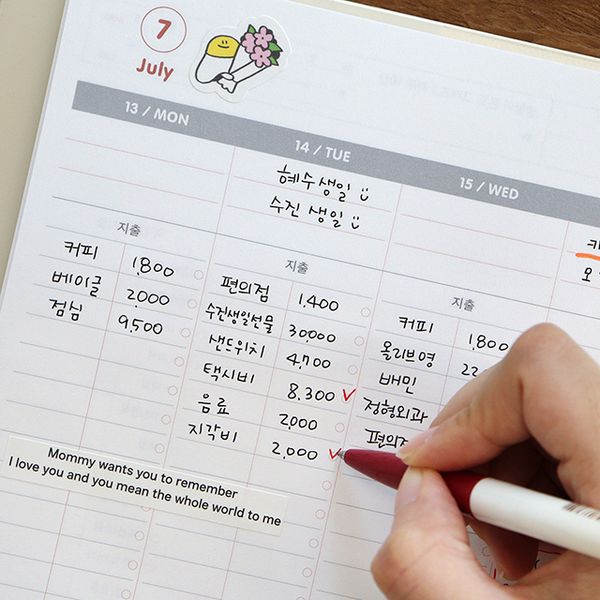 7
July
13 / MON
14 / TUE
15 / WED
혜수생일
수진 생일
지출
커피 1,800
베이글 2,000
점심 9,500
지출
편의점 1,400
수진생일선물 30,000
샌드위치 4,700
택시비 8,300
음료 2,000
지각비 2,000
지출
커피 1,800
올리브영 22
배민
정형외과
편의점
Mommy wants you to remember
I love you and you mean the whole world to me